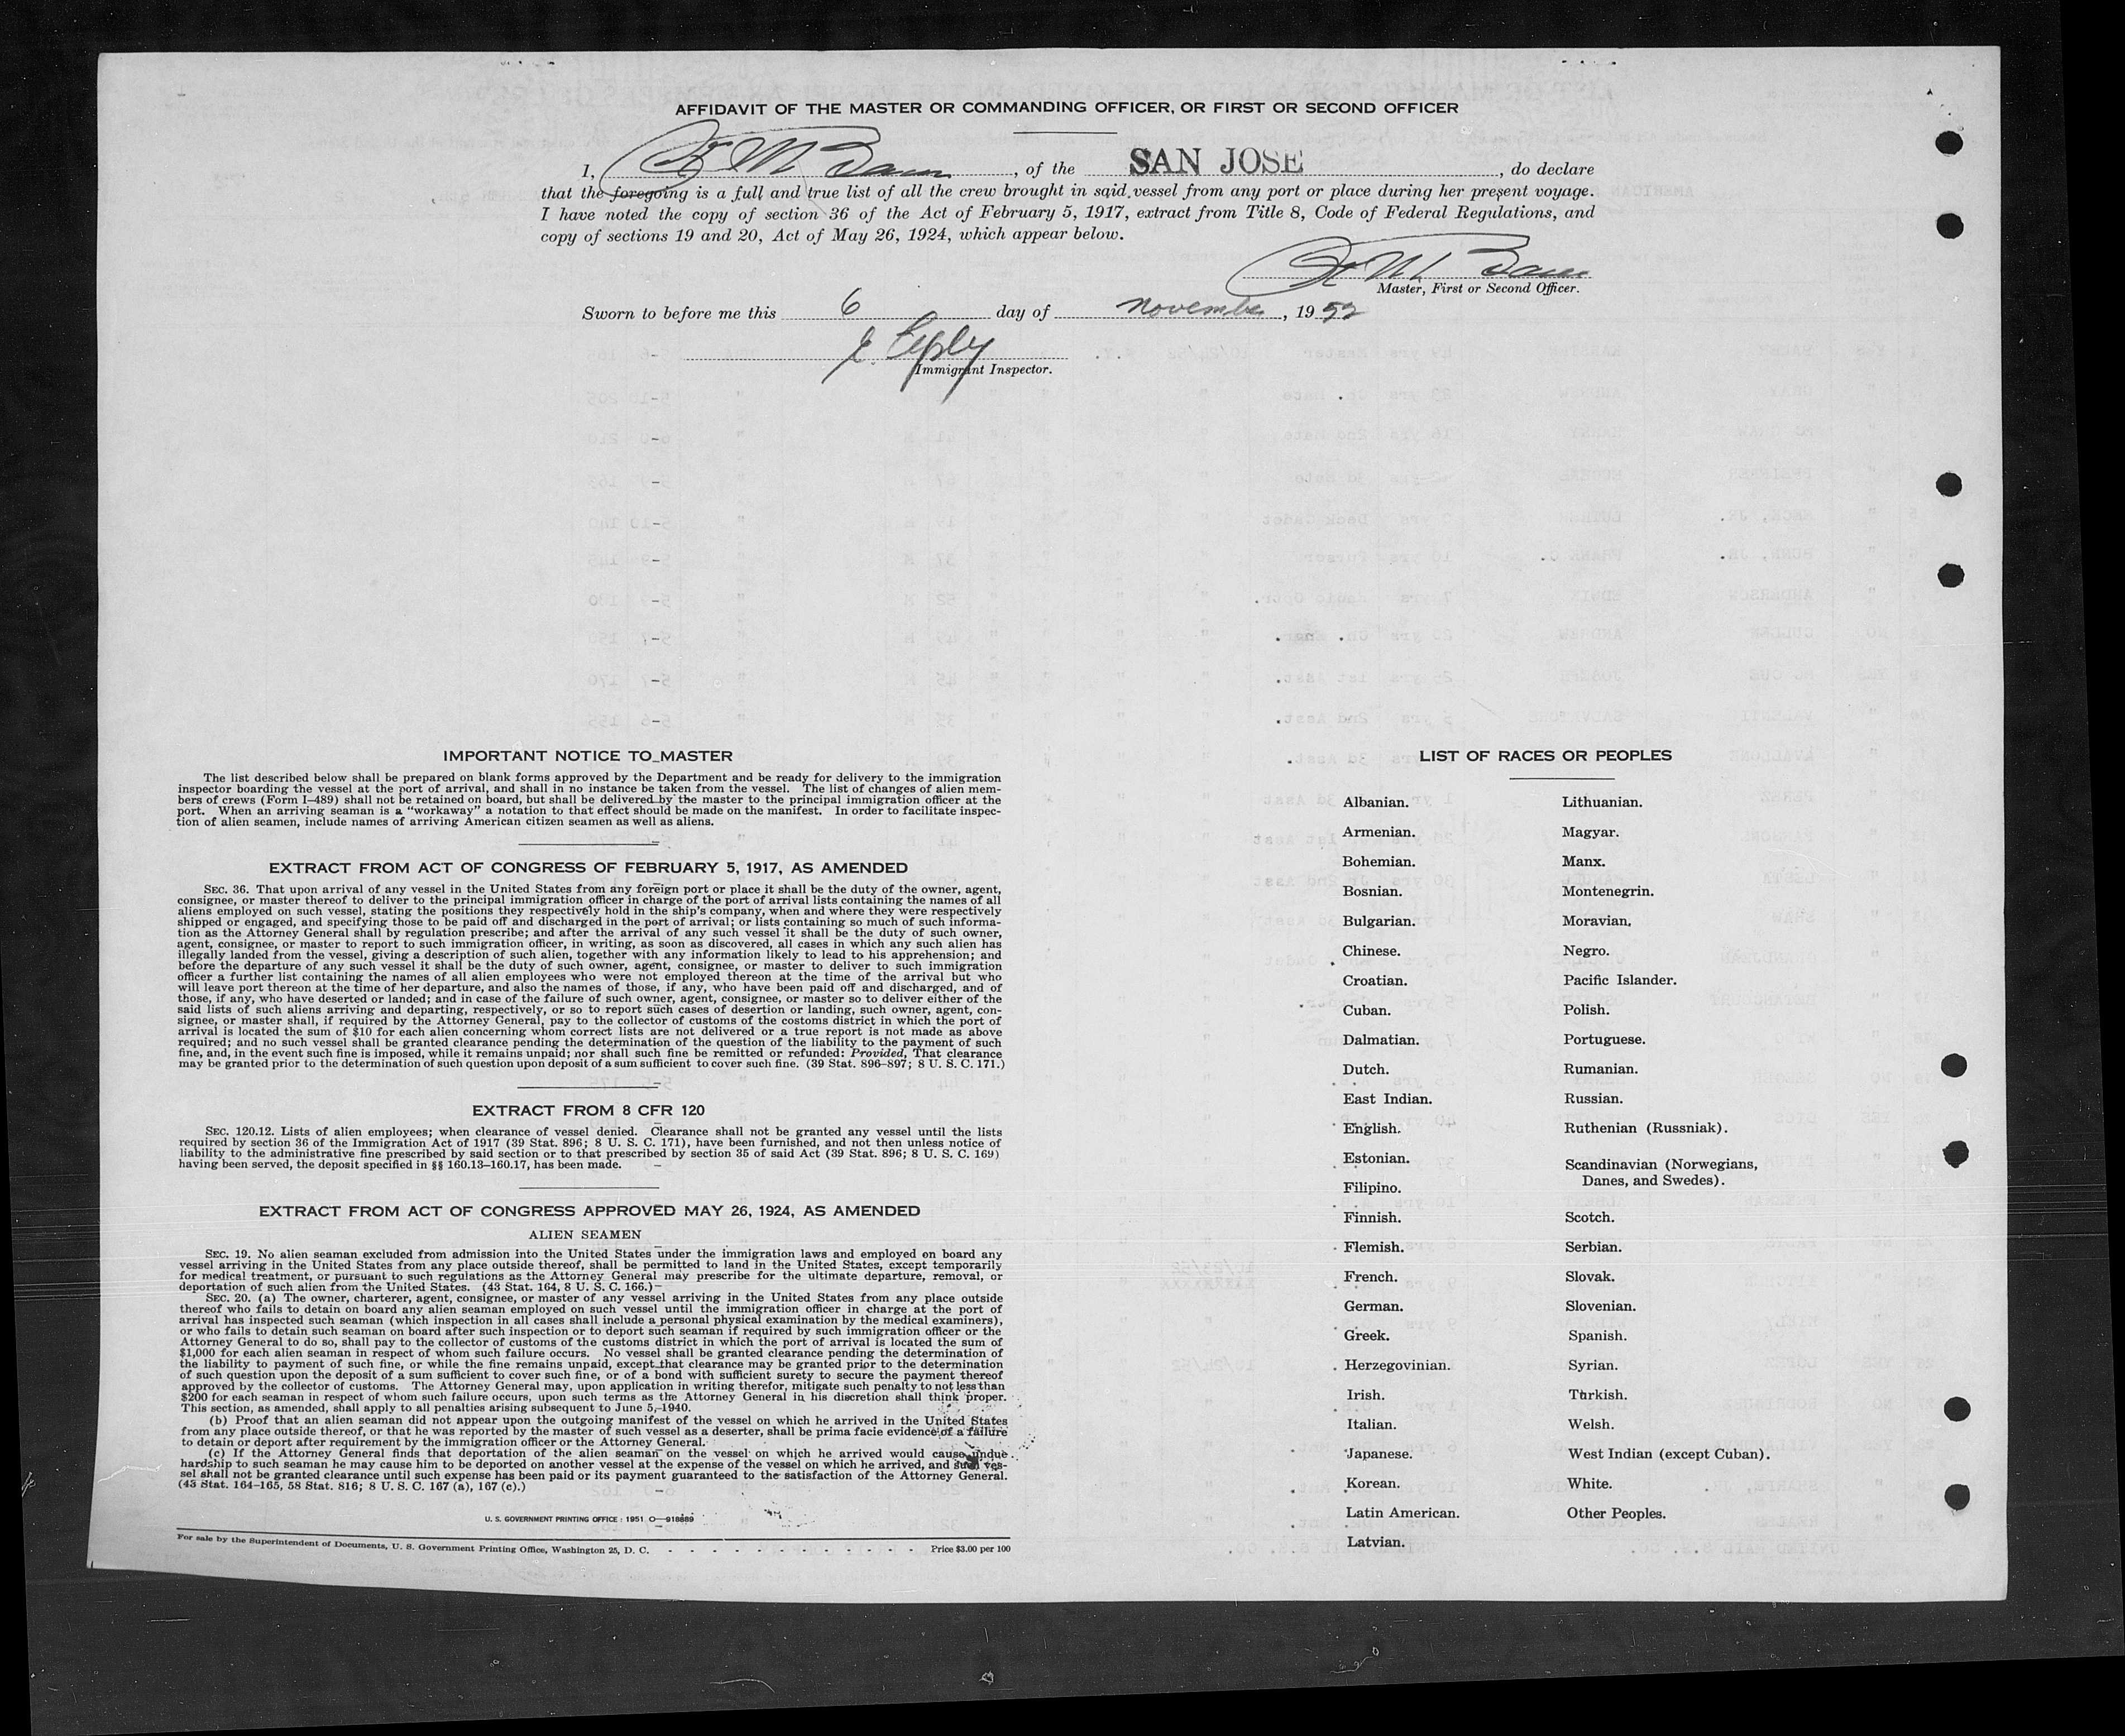 AFFIDAVIT OF THE MASTER OR COMMANDING OFFICER, OR FIRST OR SECOND OFFICER
I, , of the SAN JOSE , do declare
that the foregoing is a full and true list of all the crew brought in said vessel from any port or place during her present voyage.
I have noted the copy of section 36 of the Act of February 5, 1917, extract from Title 8, Code of Federal Regulations, and
copy of sections 19 and 20, Act of May 26, 1924, which appear below.
Master, First or Second Officer.
Sworn to before me this 6 day of November, 1952
Immigrant Inspector.
IMPORTANT NOTICE TO MASTER
The list described below shall be prepared on blank forms approved by the Department and be ready for delivery to the immigration
inspector boarding the vessel at the port of arrival, and shall in no instance be taken from the vessel. The list of changes of alien mem-
bers of crews (Form I–489) shall not be retained on board, but shall be delivered by the master to the principal immigration officer at the
port. When an arriving seaman is a “workaway” a notation to that effect should be made on the manifest. In order to facilitate inspec-
tion of alien seamen, include names of arriving American citizen seamen as well as aliens.
EXTRACT FROM ACT OF CONGRESS OF FEBRUARY 5, 1917, AS AMENDED
SEC. 36. That upon arrival of any vessel in the United States from any foreign port or place it shall be the duty of the owner, agent,
consignee, or master thereof to deliver to the principal immigration officer in charge of the port of arrival lists containing the names of all
aliens employed on such vessel, stating the positions they respectively hold in the ship's company, when and where they were respectively
shipped or engaged, and specifying those to be paid off and discharged in the port of arrival; or lists containing so much of such informa-
tion as the Attorney General shall by regulation prescribe; and after the arrival of any such vessel it shall be the duty of such owner,
agent, consignee, or master to report to such immigration officer, in writing, as soon as discovered, all cases in which any such alien has
illegally landed from the vessel, giving a description of such alien, together with any information likely to lead to his apprehension; and
before the departure of any such vessel it shall be the duty of such owner, agent, consignee, or master to deliver to such immigration
officer a further list containing the names of all alien employees who were not employed thereon at the time of the arrival but who
will leave port thereon at the time of her departure, and also the names of those, if any, who have been paid off and discharged, and of
those, if any, who have deserted or landed; and in case of the failure of such owner, agent, consignee, or master so to deliver either of the
said lists of such aliens arriving and departing, respectively, or so to report such cases of desertion or landing, such owner, agent, con-
signee, or master shall, if required by the Attorney General, pay to the collector of customs of the costoms district in which the port of
arrival is located the sum of $10 for each alien concerning whom correct lists are not delivered or a true report is not made as above
required; and no such vessel shall be granted clearance pending the determination of the question of the liability to the payment of such
fine, and, in the event such fine is imposed, while it remains unpaid; nor shall such fine be remitted or refunded: Provided, That clearance
may be granted prior to the determination of such question upon deposit of a sum sufficient to cover such fine. (39 Stat. 896–897; 8 U. S. C. 171.)
EXTRACT FROM 8 CFR 120
SEC. 120.12. Lists of alien employees; when clearance of vessel denied. Clearance shall not be granted any vessel until the lists
required by section 36 of the Immigration Act of 1917 (39 Stat. 896; 8 U. S. C. 171), have been furnished, and not then unless notice of
liability to the administrative fine prescribed by said section or to that prescribed by section 35 of said Act (39 Stat. 896; 8 U. S. C. 169)
having been served, the deposit specified in §§ 160.13–160.17, has been made.
EXTRACT FROM ACT OF CONGRESS APPROVED MAY 26, 1924, AS AMENDED
ALIEN SEAMEN
SEC. 19. No alien seaman excluded from admission into the United States under the immigration laws and employed on board any
vessel arriving in the United States from any place outside thereof, shall be permitted to land in the United States, except temporarily
for medical treatment, or pursuant to such regulations as the Attorney General may prescribe for the ultimate departure, removal, or
deportation of such alien from the United States. (43 Stat. 164, 8 U. S. C. 166.)
SEC. 20. (a) The owner, charterer, agent, consignee, or master of any vessel arriving in the United States from any place outside
thereof who fails to detain on board any alien seaman employed on such vessel until the immigration officer in charge at the port of
arrival has inspected such seaman (which inspection in all cases shall include a personal physical examination by the medical examiners),
or who fails to detain such seaman on board after such inspection or to deport such seaman if required by such immigration officer or the
Attorney General to do so, shall pay to the collector of customs of the customs district in which the port of arrival is located the sum of
$1,000 for each alien seaman in respect of whom such failure occurs. No vessel shall be granted clearance pending the determination of
the liability to payment of such fine, or while the fine remains unpaid, except that clearance may be granted prior to the determination
of such question upon the deposit of a sum sufficient to cover such fine, or of a bond with sufficient surety to secure the payment thereof
approved by the collector of customs. The Attorney General may, upon application in writing therefor, mitigate such penalty to not less than
$200 for each seaman in respect of whom such failure occurs, upon such terms as the Attorney General in his discretion shall think proper.
This section, as amended, shall apply to all penalties arising subsequent to June 5, 1940.
(b) Proof that an alien seaman did not appear upon the outgoing manifest of the vessel on which he arrived in the United States
from any place outside thereof, or that he was reported by the master of such vessel as a deserter, shall be prima facie evidence of a failure
to detain or deport after requirement by the immigration officer or the Attorney General.
(c) If the Attorney General finds that deportation of the alien seaman on the vessel on which he arrived would cause undue
hardship to such seaman he may cause him to be deported on another vessel at the expense of the vessel on which he arrived, and such ves-
sel shall not be granted clearance until such expense has been paid or its payment guaranteed to the satisfaction of the Attorney General.
(43 Stat. 164–165, 58 Stat. 816; 8 U. S. C. 167 (a), 167 (c).)
U. S. GOVERNMENT PRINTING OFFICE : 1951 O—918889
For sale by the Superintendent of Documents, U. S. Government Printing Office, Washington 25, D. C. - - - - - - - - - - - - - Price $3.00 per 100
LIST OF RACES OR PEOPLES
Albanian.
Armenian.
Bohemian.
Bosnian.
Bulgarian.
Chinese.
Croatian.
Cuban.
Dalmatian.
Dutch.
East Indian.
English.
Estonian.
Filipino.
Finnish.
Flemish.
French.
German.
Greek.
Herzegovinian.
Irish.
Italian.
Japanese.
Korean.
Latin American.
Latvian.
Lithuanian.
Magyar.
Manx.
Montenegrin.
Moravian.
Negro.
Pacific Islander.
Polish.
Portuguese.
Rumanian.
Russian.
Ruthenian (Russniak).
Scandinavian (Norwegians,
Danes, and Swedes).
Scotch.
Serbian.
Slovak.
Slovenian.
Spanish.
Syrian.
Turkish.
Welsh.
West Indian (except Cuban).
White.
Other Peoples.